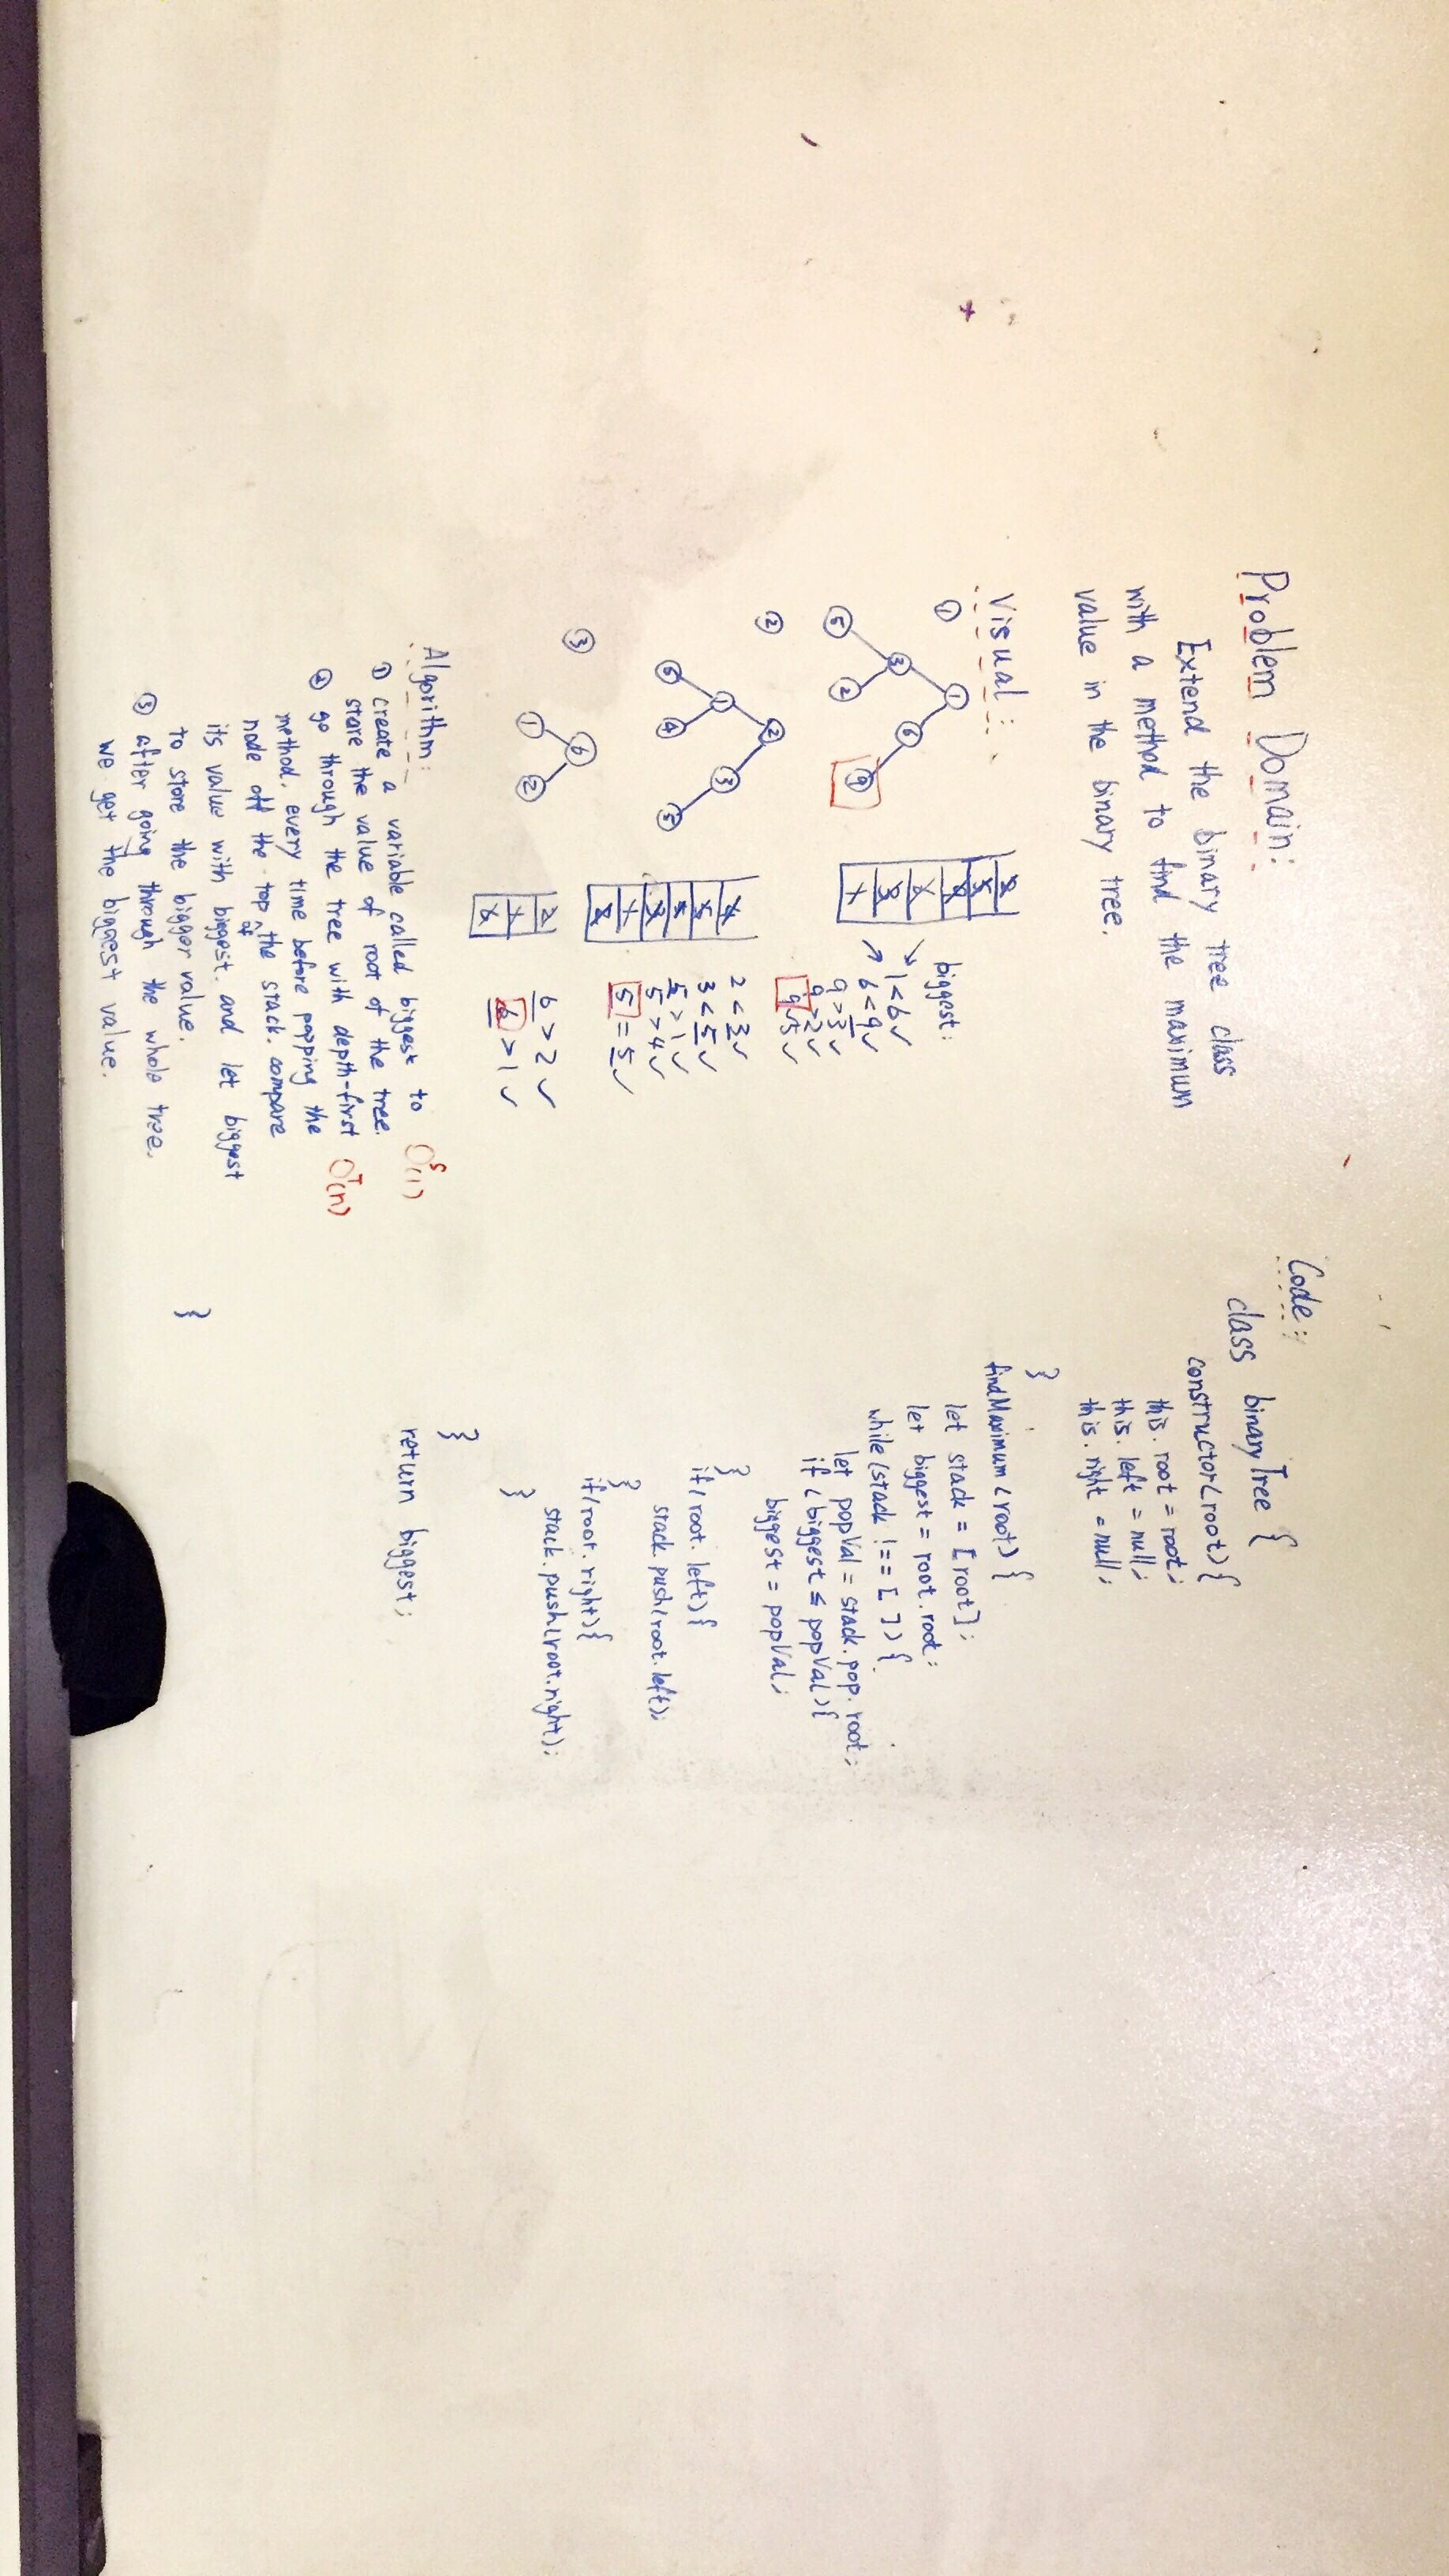 Problem Domain:
Extend the binary tree class
with a method to find the maximum
value in the binary tree.
Visual:
①
1
3 6
5 2 9
biggest:
1 < 6 ✓
6 < 9 ✓
9 > 3 ✓
9 > 2 ✓
9 > 5 ✓
②
2
1 3
4 5
2 < 3 ✓
3 < 5 ✓
5 > 1 ✓
5 > 4 ✓
5 = 5 ✓
③
6
1 2
2
1
6
6 > 2 ✓
6 > 1 ✓
Algorithm:
① create a variable called biggest to O(1) S
store the value of root of the tree.
② go through the tree with depth-first O(n) T
method, every time before popping the
node off the top of the stack. compare
its value with biggest. and let biggest
to store the bigger value.
③ after going through the whole tree.
we get the biggest value.
Code:
class binaryTree {
constructor(root) {
this.root = root;
this.left = null;
this.right = null;
}
findMaximum(root) {
let stack = [root];
let biggest = root.root;
while (stack !== [ ]) {
let popVal = stack.pop.root;
if (biggest ≤ popVal) {
biggest = popVal;
}
if (root.left) {
stack.push(root.left);
}
if (root.right) {
stack.push(root.right);
}
}
return biggest;
}